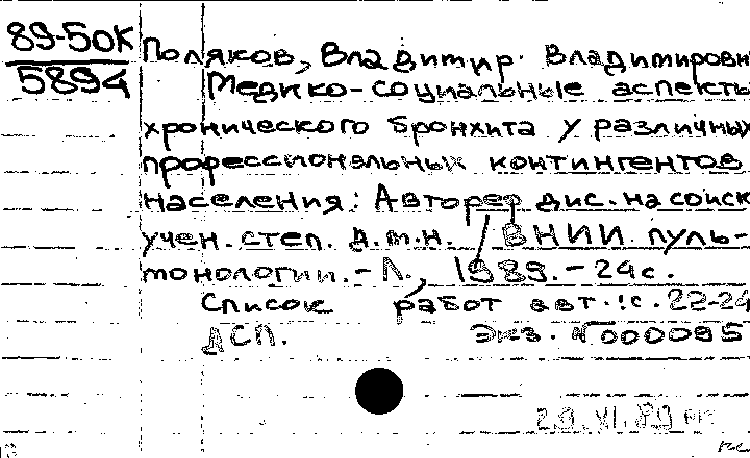 89-50К
5894
Поляков, Владимир Владимирови
Медико-социальные аспекты
хронического бронхита у различных
профессиональных контингентов
населения: Автореф дис. на соиск
учен. степ. д.м.н. ВНИИ пуль-
монологии. - Л., 1989. - 24 с.
Список работ авт.: с. 22-24
ДСП. Экз. N 000085
29.VI.89